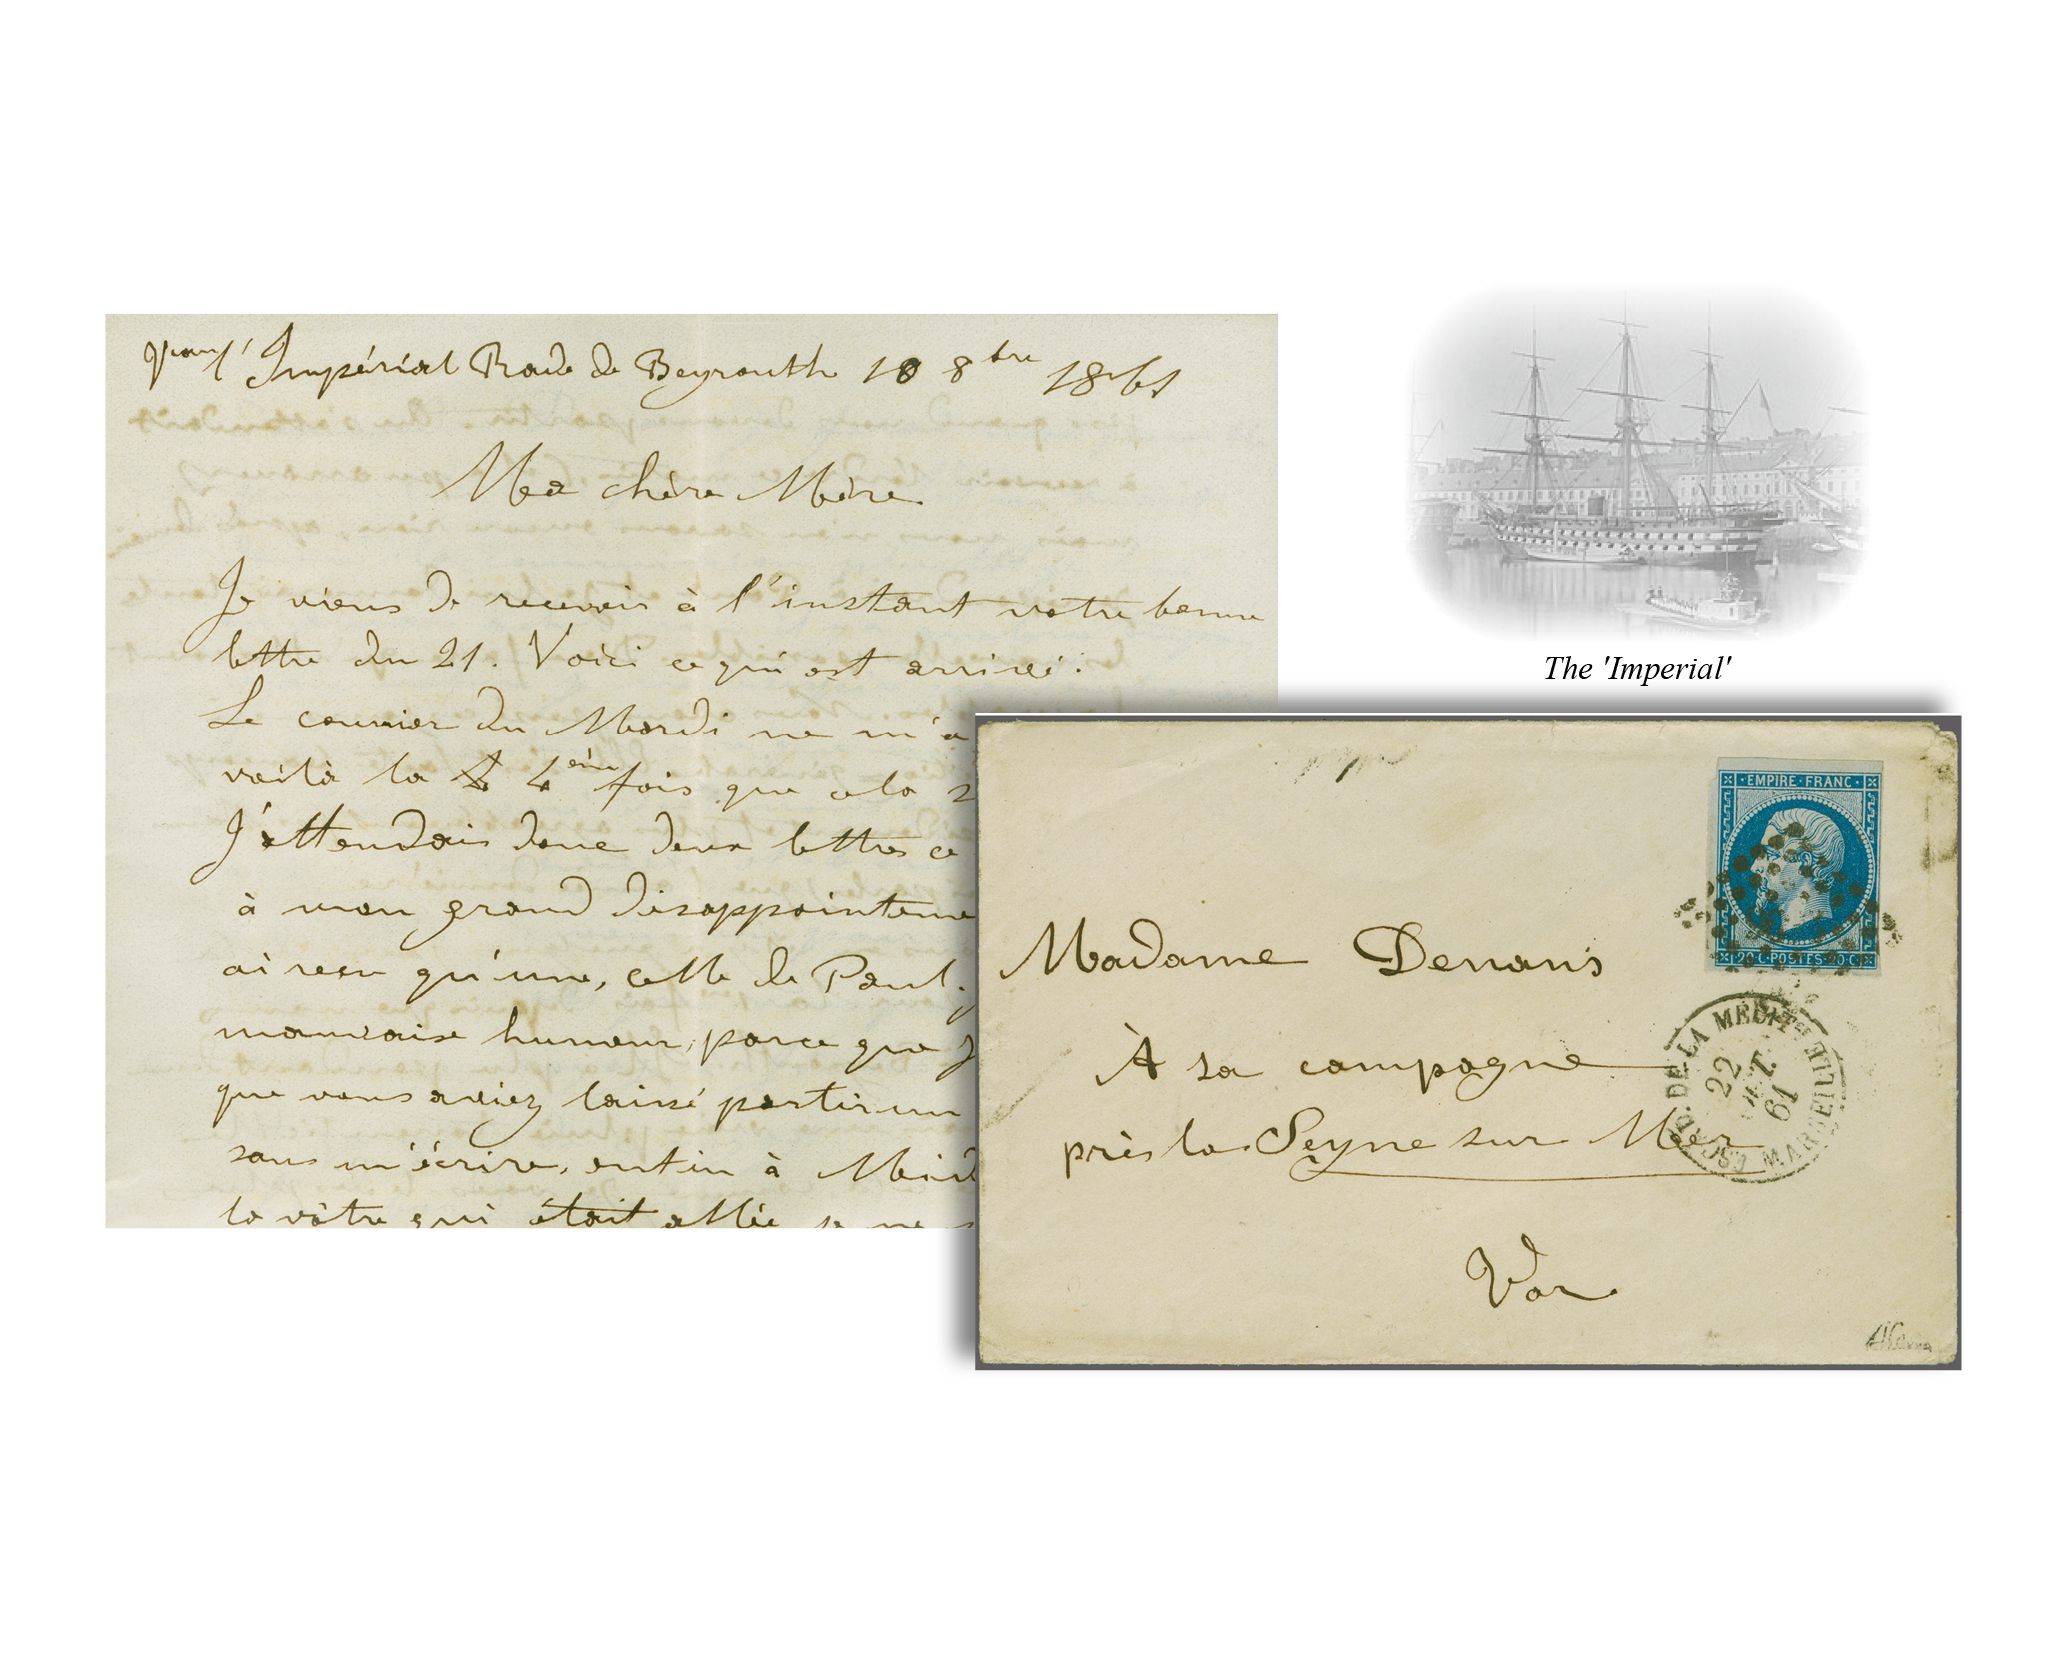 l'Impérial Rade de Beyrouth 10 8bre 1861
Ma chère Mère
Je viens de recevoir à l'instant votre bonne
lettre du 21. Voici ce qui est arrivé :
Le courrier du Mardi ne m'a
voilà la 4ème fois que cela
J'attendais donc deux lettres ce
à mon grand désappointeme
ai reçu qu'une, celle de Paul.
mauvaise humeur, parce que j
que vous aviez laissé partir un
sans m'écrire, enfin à Mid
la vôtre qui était allée je ne s
The 'Imperial'
EMPIRE · FRANC
20·C·POSTES·20·C
Madame Denans
À sa campagne
près la Seyne sur Mer
Var
ESCAD. DE LA MÉDITée MARSEILLE
22
OCT.
61